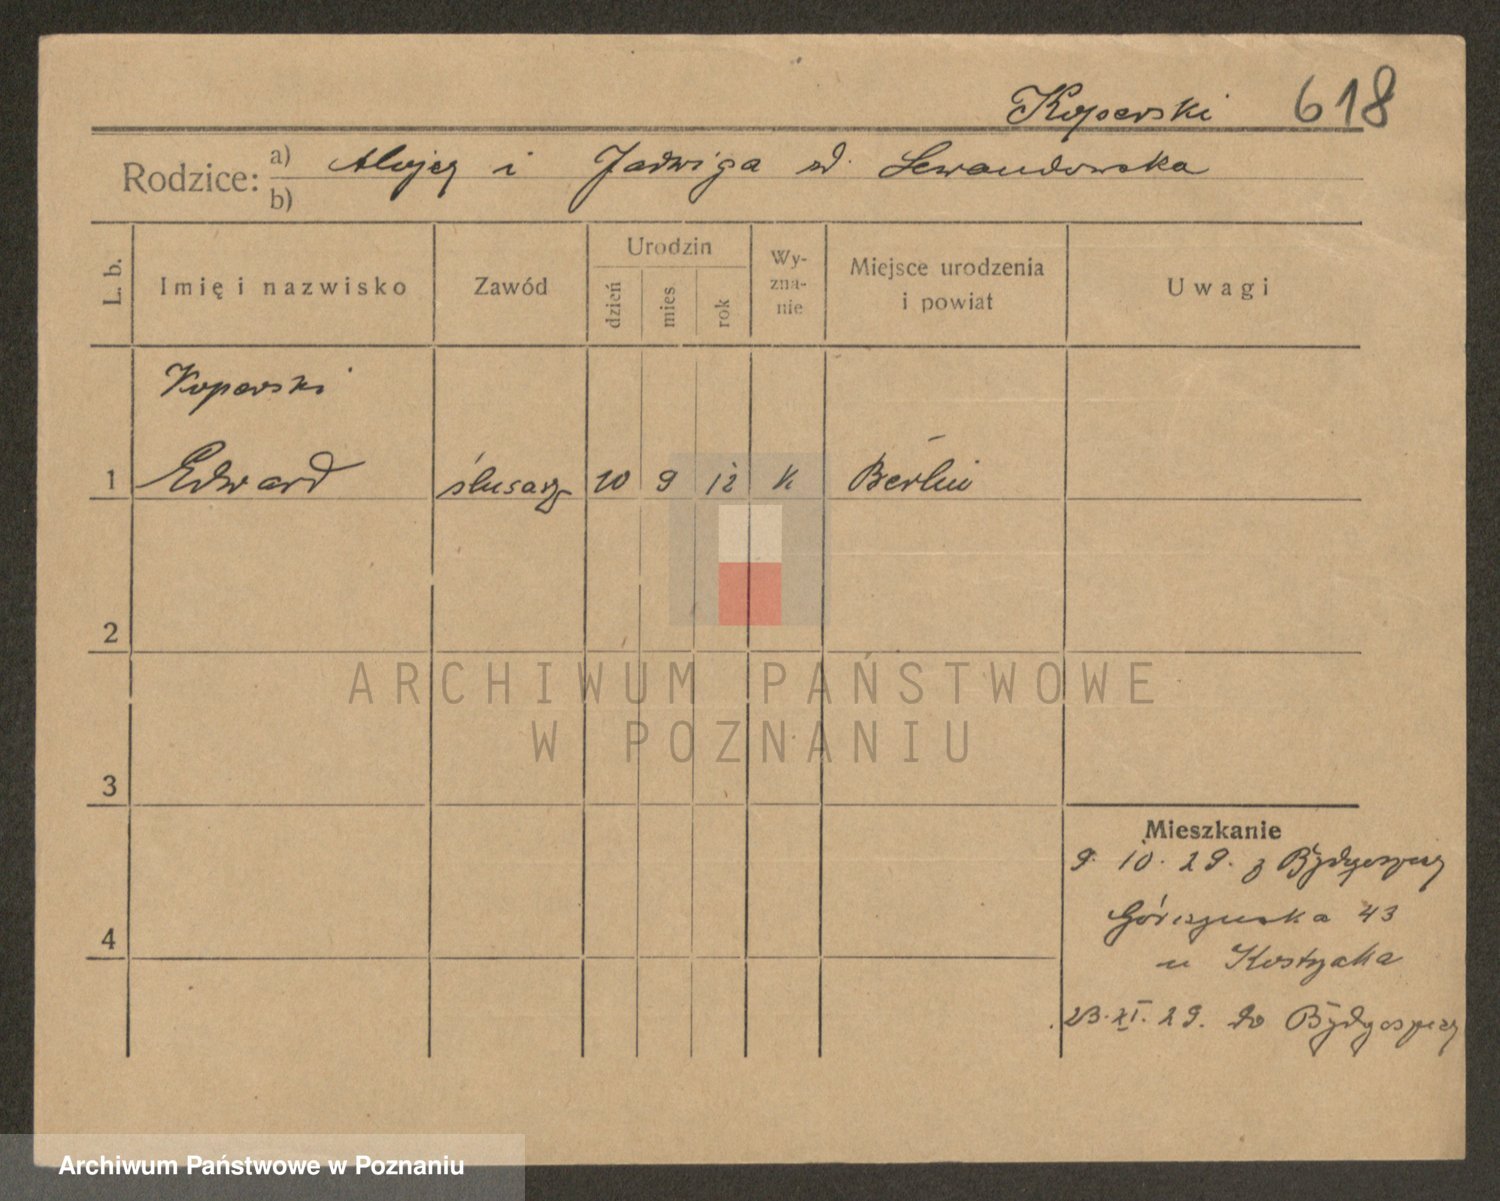 Koperski 618
Rodzice: a) Alojzy i Jadwiga zd. Lewandowska
b)
L. b. Imię i nazwisko Zawód Urodzin dzień mies rok Wy-zna-nie Miejsce urodzenia i powiat Uwagi
Koperski
1 Edward ślusarz 10 9 12 k Berlin
2
ARCHIWUM PAŃSTWOWE
W POZNANIU
3
Mieszkanie
9. 10. 29. z Bydgoszczy
43
4
u
23. XI. 29. do Bydgoszczy
Archiwum Państwowe w Poznaniu